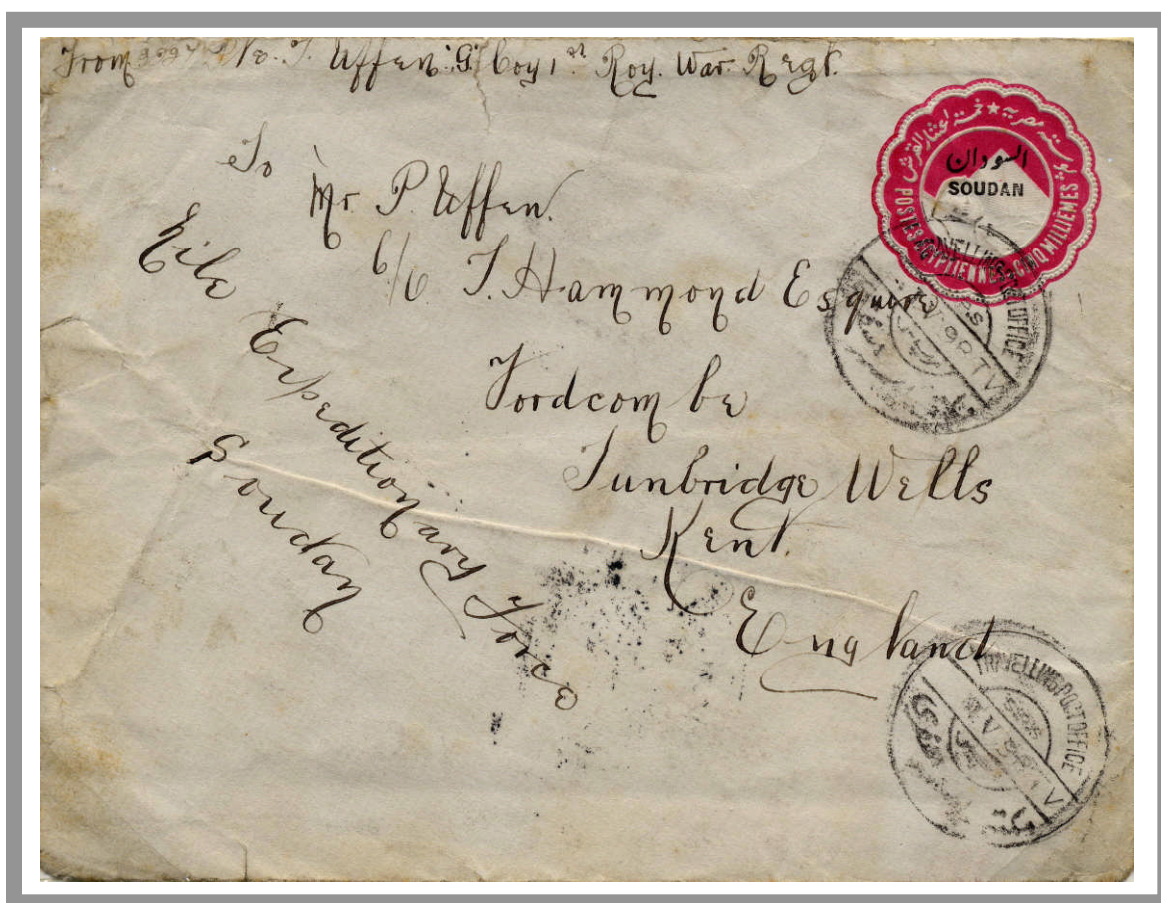 From T. Uffen. G. Coy 1st Roy. War. Regt.
To
Mr P. Uffen.
C/O T. Hammond Esquire
Fordcombe
Tunbridge Wells
Kent.
England
Nile Expeditionary Force
Soudan
خمسة اعشار القرش
بوسته مصرية
السودان
SOUDAN
POSTES EGYPTIENNES CINQ MILLIÈMES
TRAVELLING POST OFFICE
TRAVELLING POST OFFICE